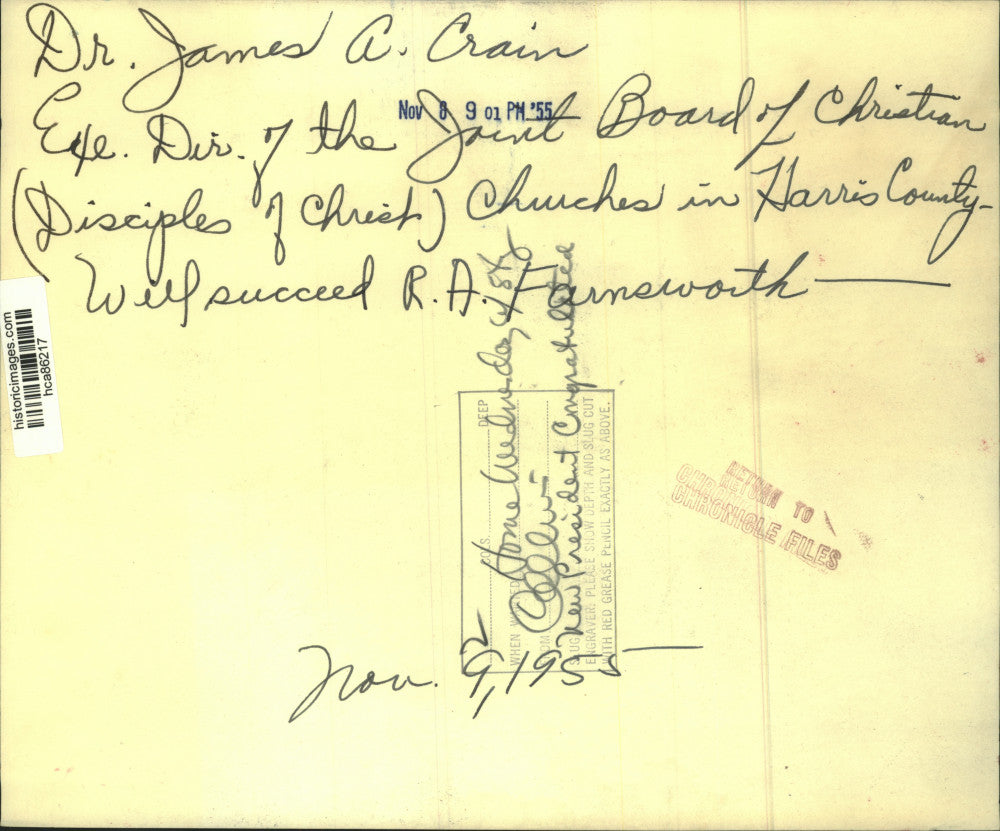 Dr. James A. Crain
Nov 8 9 01 PM '55
Exe. Dir. of the Joint Board of Christian
(Disciples of Christ) Churches in Harris County-
Will succeed R. A. Farnsworth —
historicimages.com
hca86217
DEEP
COLS.
Home Wednesday 8
WHEN
New President Congratulated
SLUG
ENGRAVER: PLEASE SHOW DEPTH AND SLUG CUT
WITH RED GREASE PENCIL EXACTLY AS ABOVE.
RETURN TO
CHRONICLE FILES
2
Nov. 9, 1955 —